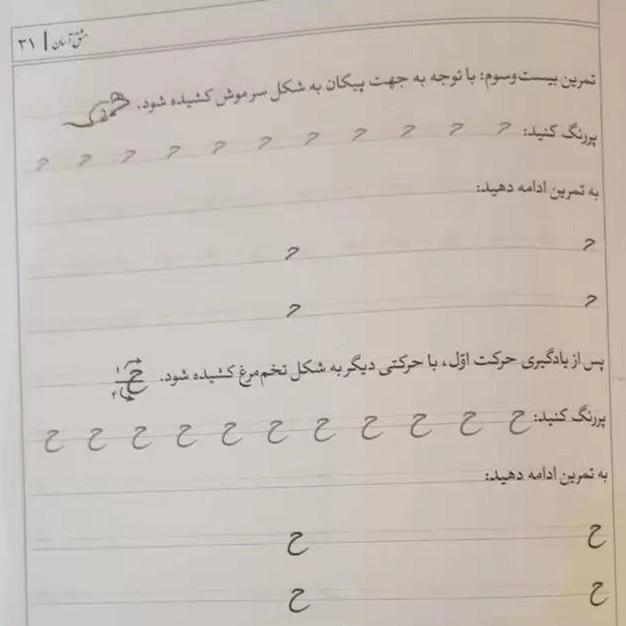 مشق آسان | ۳۱
تمرین بیست‌وسوم: با توجه به جهت پیکان به شکل سر موش کشیده شود.
پررنگ کنید:
به تمرین ادامه دهید:
پس از یادگیری حرکت اوّل، با حرکتی دیگر به شکل تخم‌مرغ کشیده شود. ح ۱ ۲
پررنگ کنید: ح ح ح ح ح ح ح ح ح ح ح
به تمرین ادامه دهید:
ح ح
ح ح